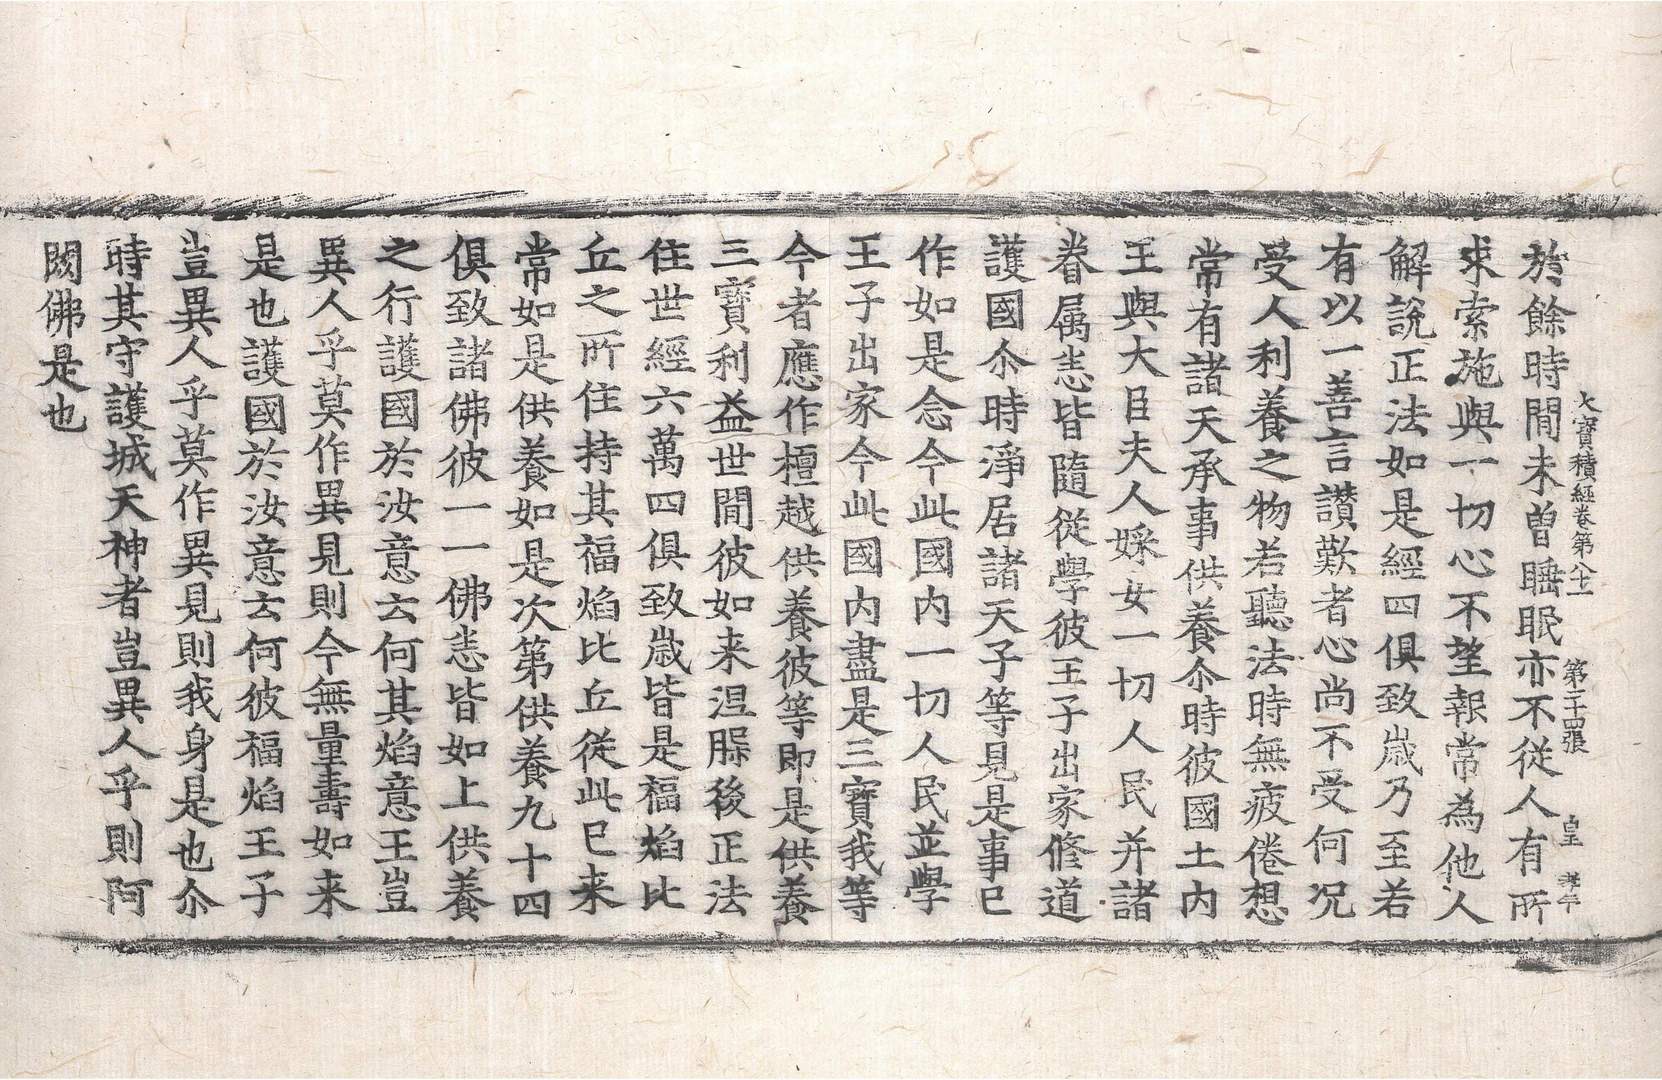 大寶積經卷第八十一 第二十四張 皇 孝年
於餘時閒未曾睡眠亦不從人有所
求索施與一切心不望報常為他人
解說正法如是經四俱致歲乃至若
有以一善言讃歎者心尚不受何況
受人利養之物若聽法時無疲倦想
常有諸天承事供養尒時彼國土內
王與大臣夫人婇女一切人民并諸
眷属恚皆隨從學彼王子出家修道
護國尒時淨居諸天子等見是事已
作如是念今此國內一切人民並學
王子出家今此國內盡是三寶我等
今者應作檀越供養彼等即是供養
三寶利益世間彼如来涅脲後正法
住世經六萬四俱致歲皆是福焰比
丘之所住持其福焰比丘從此已来
常如是供養如是次第供養九十四
俱致諸佛彼一一佛恚皆如上供養
之行護國於汝意云何其焰意王豈
異人乎莫作異見則今無量壽如来
是也護國於汝意云何彼福焰王子
豈異人乎莫作異見則我身是也尒
時其守護城天神者豈異人乎則阿
閦佛是也